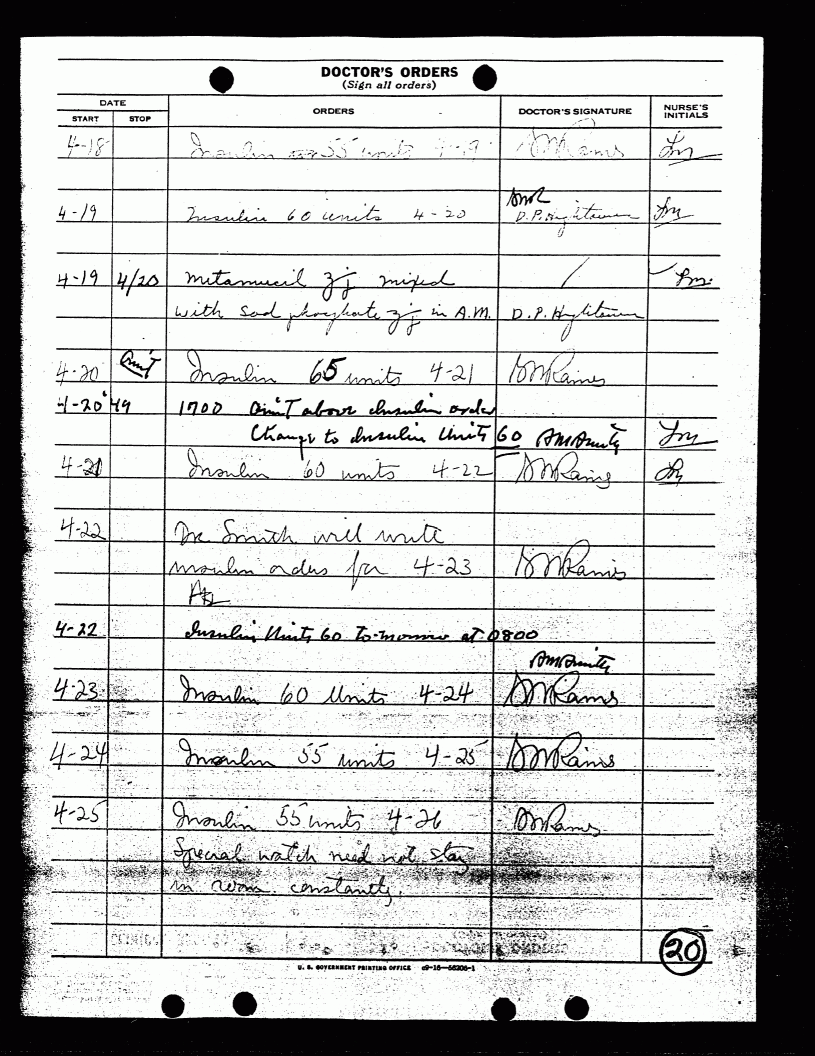 DOCTOR'S ORDERS
(Sign all orders)
DATE
START STOP ORDERS DOCTOR'S SIGNATURE NURSE'S INITIALS
4-18 Insulin 55 units 4-19 Raines
4-19 Insulin 60 units 4-20 D.P. Hightower
4-19 4/20 Metamucil mixed
with Sod phosphate in A.M. D.P. Hightower
4-20 Omit Insulin 65 units 4-21 Raines
4-20 '49 1700 Omit above Insulin order
Change to Insulin Units 60
Insulin 60 units 4-22 Raines
4-22 Dr. Smith will write
insulin orders for 4-23 Raines
4-22 Insulin Units 60 to-morrow at 0800
4-23 Insulin 60 Units 4-24 Raines
4-24 Insulin 55 units 4-25 Raines
4-25 Insulin 55 units 4-26 Raines
Special watch need not stay
in room constantly.
20
U. S. GOVERNMENT PRINTING OFFICE